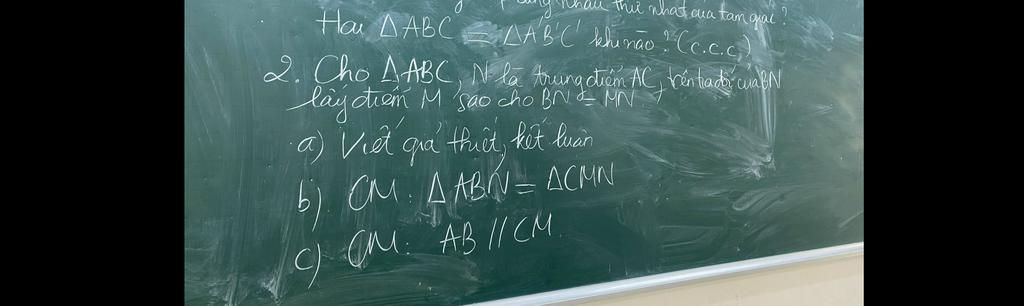 nhau thứ nhất của tam giác?
Hai ΔABC = ΔA'B'C' khi nào? (c.c.c)
2. Cho ΔABC, N là trung điểm AC, trên tia đối của BN
lấy điểm M sao cho BN = MN
a) Viết giả thiết, kết luận
b). CM: ΔABN = ΔCMN
c) CM: AB // CM.